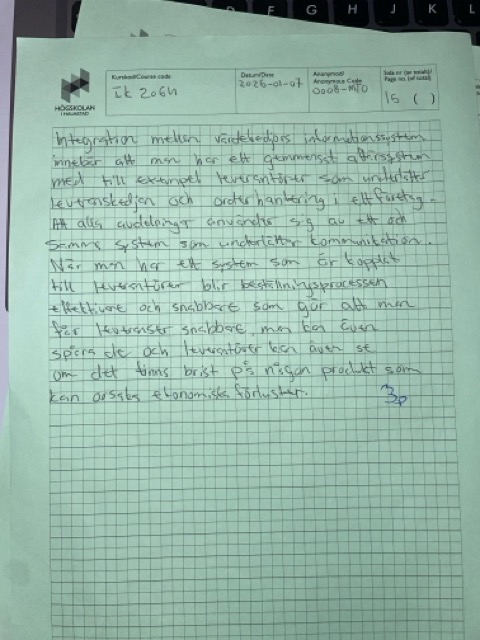 D F G H J K L
HÖGSKOLAN
I HALMSTAD
Kurskod/Course code
Datum/Date
2026-01-07
Anonymkod/
Anonymous Code
0008-MJO
Sida nr (av totalt)/
Page no. (of total)
15 ( )
Integration mellan värdekedjors informationssystem
innebär att man har ett gemensamt affärssystem
med till exempel leverantörer som underlättar
leveranskedjan och orderhantering i ett företag.
Att alla avdelningar använder sig av ett och
samma system som underlättar kommunikation.
När man har ett system som är kopplat
till leverantörer blir beställningsprocessen
effektivare och snabbare som gör att man
får leveranser snabbare, man kan även
spåra de och leverantörer kan även se
om det finns brist på någon produkt som
kan orsaka ekonomiska förluster.
3p